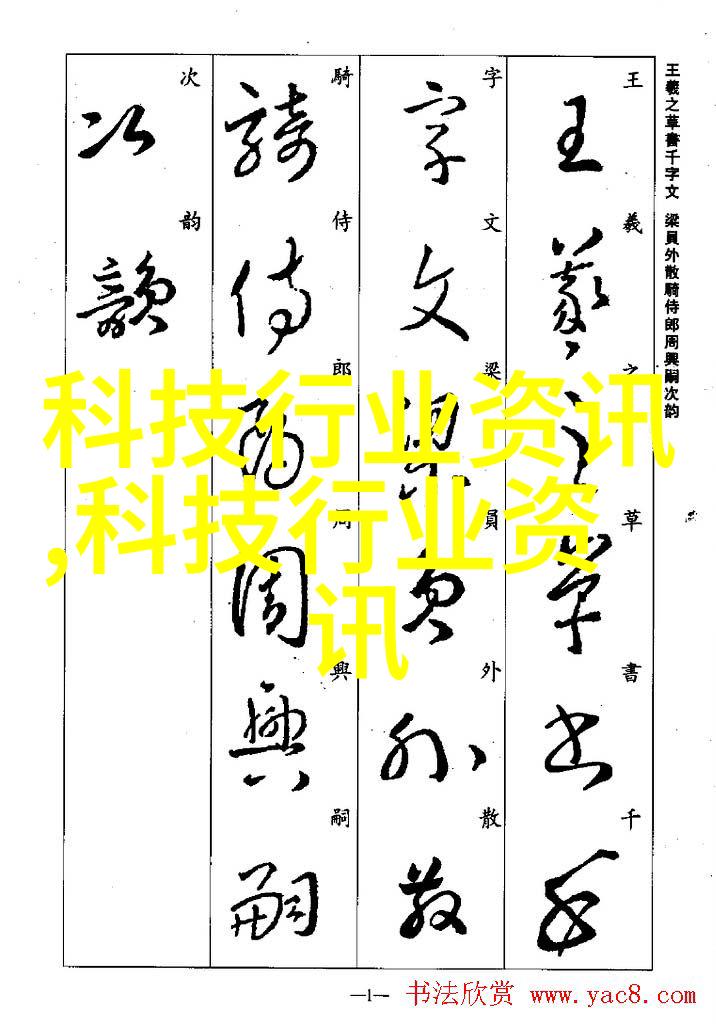 王羲之草書千字文 梁員外散騎侍郎周興嗣次韵
王羲之草書千
字文梁員外散
騎侍郎周興嗣
次韵
科技行业资讯
,科技行业资
讯
—1—
书法欣赏 www.yac8.com